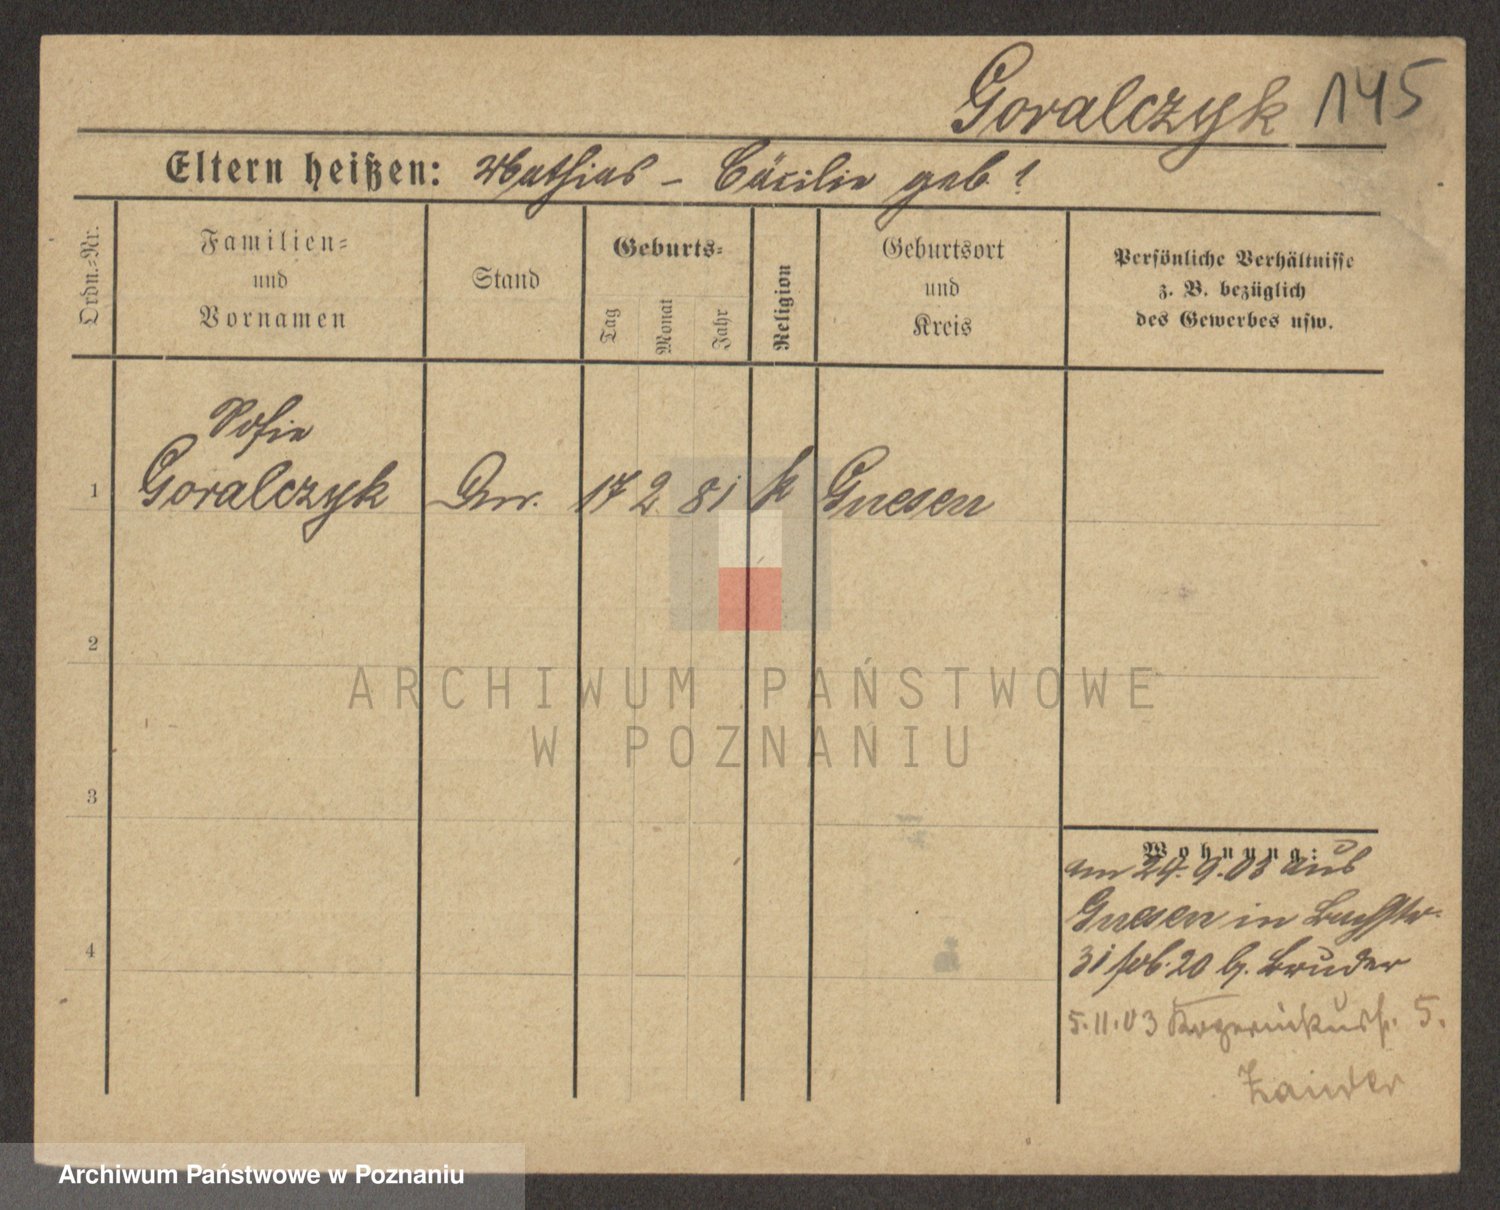 Goralczyk 145
Eltern heißen: Mathias – Cäcilie geb. ?
Ordn.-Nr.
Familien-
und
Vornamen
Stand
Geburts-
Tag
Monat
Jahr
Religion
Geburtsort
und
Kreis
Persönliche Verhältnisse
z. B. bezüglich
des Gewerbes usw.
Sofie
1 Goralczyk 17 2 81 k Gnesen
2
ARCHIWUM PAŃSTWOWE
W POZNANIU
3
Wohnung:
am 24.9.03 aus
Gnesen in
31 20 b. Bruder
4
5.11.03 5.
Archiwum Państwowe w Poznaniu